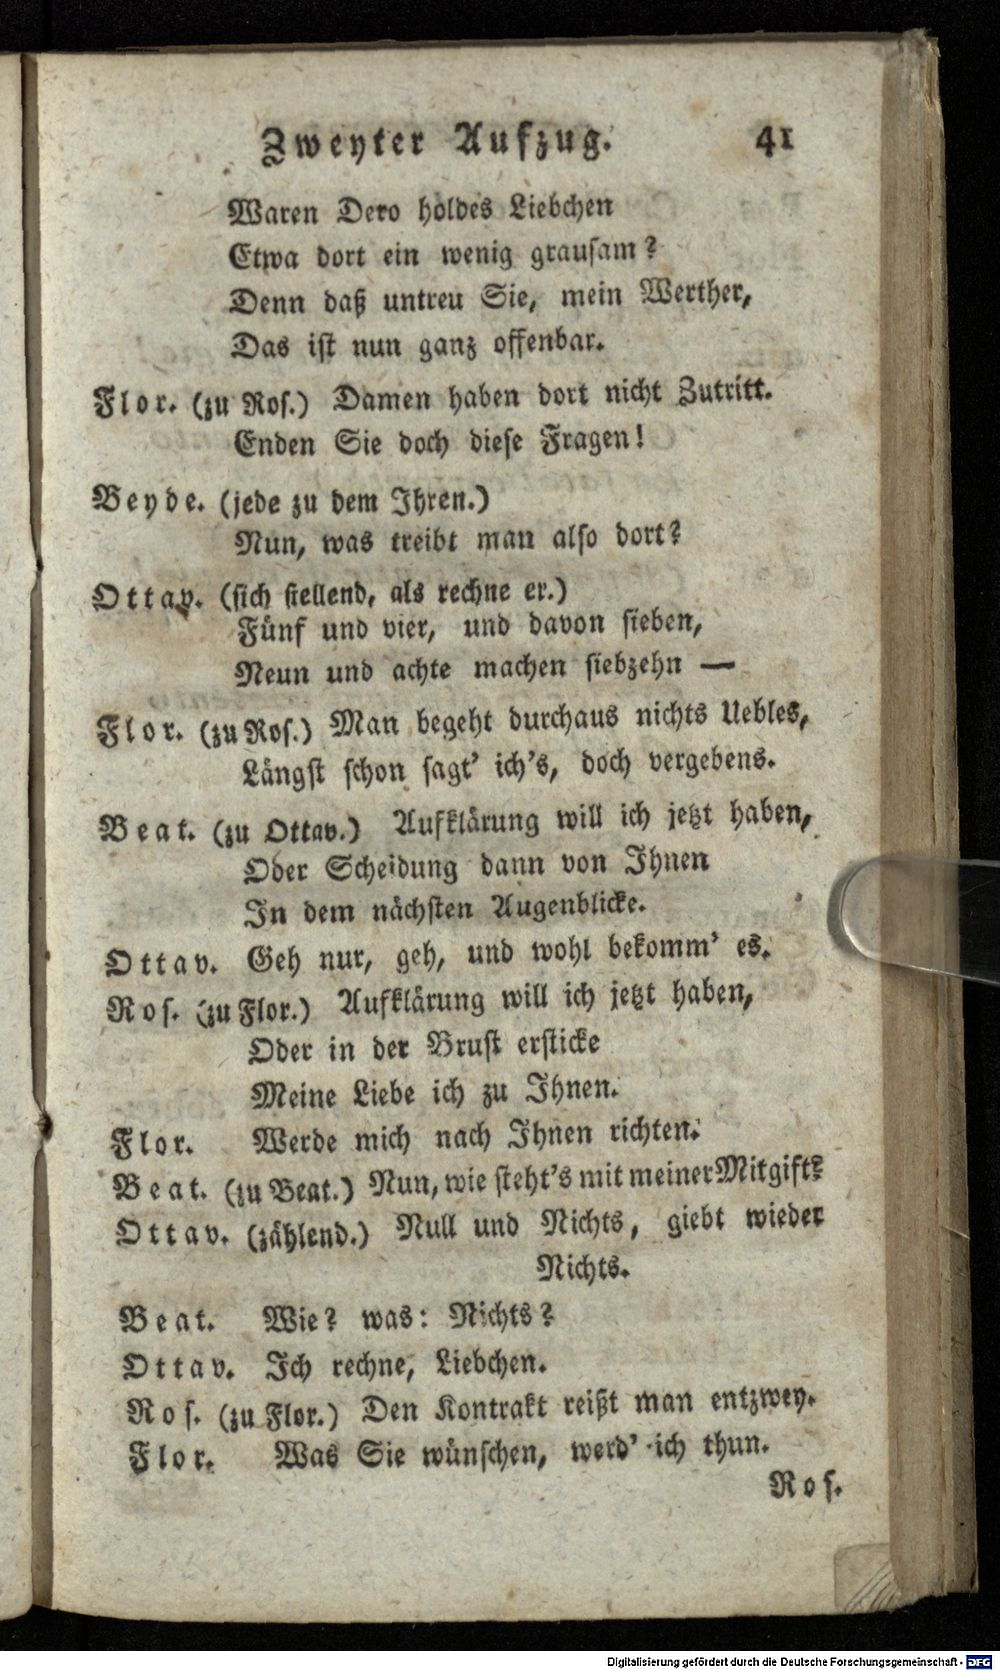 Zweyter Aufzug. 41
Waren Dero holdes Liebchen
Etwa dort ein wenig grausam?
Denn daß untreu Sie, mein Werther,
Das ist nun ganz offenbar.
Flor. (zu Ros.) Damen haben dort nicht Zutritt.
Enden Sie doch diese Fragen!
Beyde. (jede zu dem Ihren.)
Nun, was treibt man also dort?
Ottav. (sich stellend, als rechne er.)
Fünf und vier, und davon sieben,
Neun und achte machen siebzehn —
Flor. (zu Ros.) Man begeht durchaus nichts Uebles,
Längst schon sagt' ich's, doch vergebens.
Beat. (zu Ottav.) Aufklärung will ich jetzt haben,
Oder Scheidung dann von Ihnen
In dem nächsten Augenblicke.
Ottav. Geh nur, geh, und wohl bekomm' es.
Ros. (zu Flor.) Aufklärung will ich jetzt haben,
Oder in der Brust ersticke
Meine Liebe ich zu Ihnen.
Flor. Werde mich nach Ihnen richten.
Beat. (zu Beat.) Nun, wie steht's mit meiner Mitgift?
Ottav. (zählend.) Null und Nichts, giebt wieder
Nichts.
Beat. Wie? was: Nichts?
Ottav. Ich rechne, Liebchen.
Ros. (zu Flor.) Den Kontrakt reißt man entzwey.
Flor. Was Sie wünschen, werd' ich thun.
Ros.
Digitalisierung gefördert durch die Deutsche Forschungsgemeinschaft - DFG